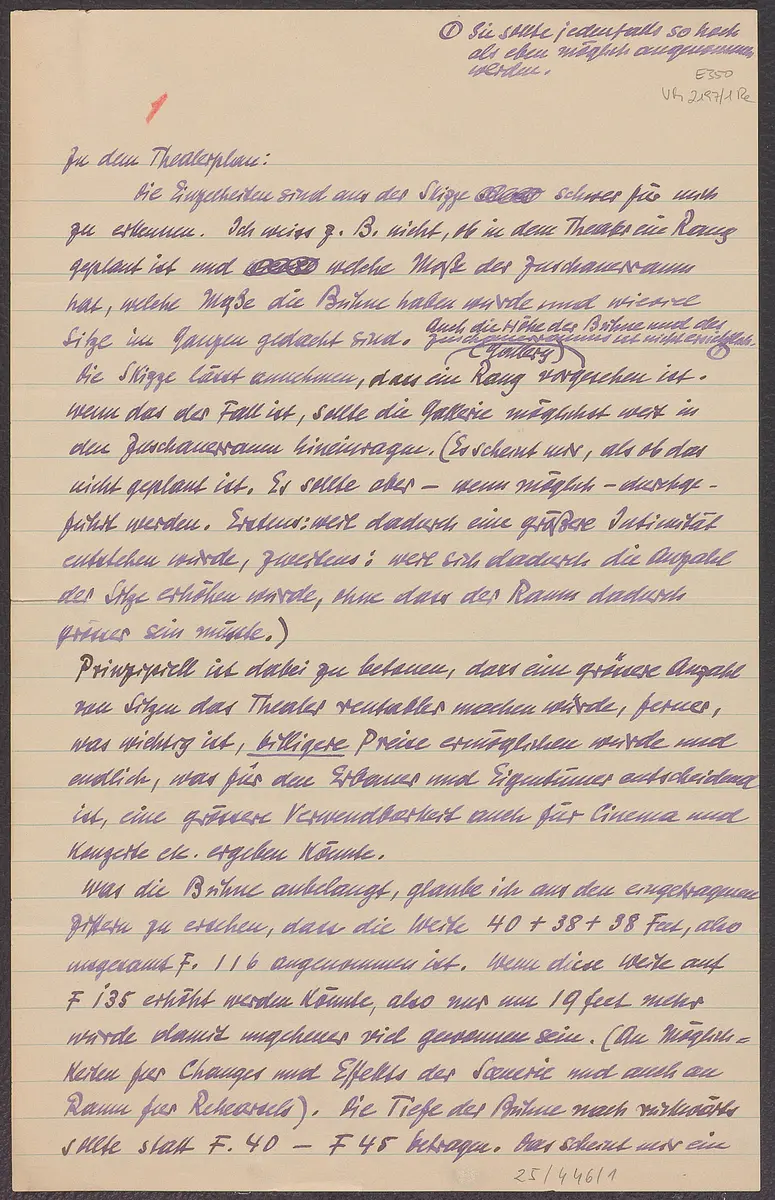 ① Sie sollte jedenfalls so hoch
als eben möglich angenommen
werden.
E350
VM 2197/1 Re
1
Zu dem Theaterplan:
Die Einzelheiten sind aus der Skizze schwer für mich
zu erkennen. Ich weiss z. B. nicht, ob in dem Theater ein Rang
geplant ist und welche Maße der Zuschauerraum
hat, welche Maße die Bühne haben würde und wieviel
Sitze im Ganzen gedacht sind. Auch die Höhe der Bühne und des
Zuschauerraums ist nicht ersichtlich. ①
(Gallery)
Die Skizze lässt annehmen, dass ein Rang vorgesehen ist.
Wenn das der Fall ist, sollte die Gallerie möglichst weit in
den Zuschauerraum hineinragen. (Es scheint mir, als ob das
nicht geplant ist. Es sollte aber – wenn möglich – durchge-
führt werden. Erstens: weil dadurch eine größere Intimität
entstehen würde, zweitens: weil sich dadurch die Anzahl
der Sitze erhöhen würde, ohne dass der Raum dadurch
grösser sein müsste.)
Prinzipiell ist dabei zu betonen, dass eine grössere Anzahl
von Sitzen das Theater rentabler machen würde, ferner,
was wichtig ist, billigere Preise ermöglichen würde und
endlich, was für den Erbauer und Eigentümer entscheidend
ist, eine grössere Verwendbarkeit auch für Cinema und
Konzerte etc. ergeben könnte.
Was die Bühne anbelangt, glaube ich aus den eingetragenen
Ziffern zu ersehen, dass die Weite 40 + 38 + 38 Feet, also
insgesamt F. 116 angenommen ist. Wenn diese Weite auf
F 135 erhöht werden könnte, also nur um 19 feet mehr
würde damit ungeheuer viel gewonnen sein. (An Möglich=
keiten fuer Changes und Effekts der Scenerie und auch an
Raum fuer Rehearsels). Die Tiefe der Bühne nach rückwärts
sollte statt F. 40 – F 45 betragen. Das scheint mir ein
25/446/1